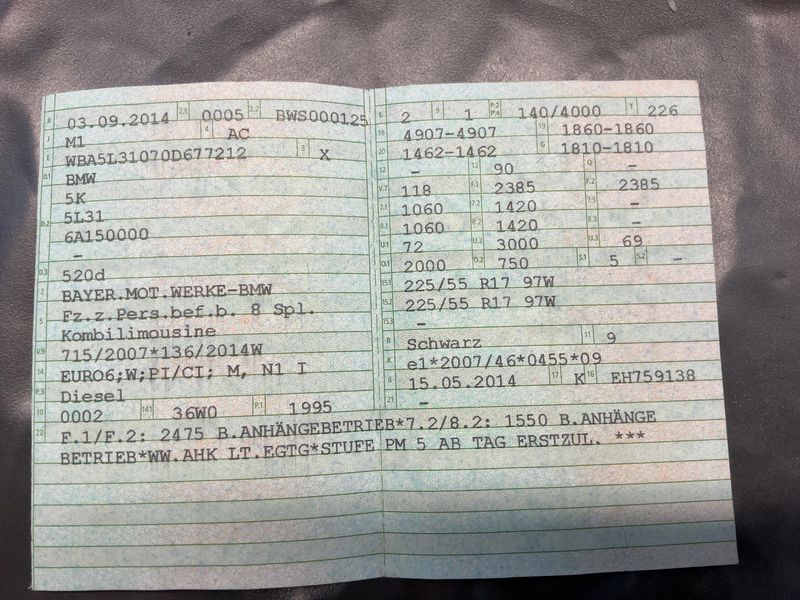 B 03.09.2014 2.1 0005 2.2 BWS000125
J M1 4 AC
E WBA5L31070D677212 3 X
D.1 BMW
D.2 5K
5L31
6A150000
–
D.3 520d
2 BAYER.MOT.WERKE-BMW
5 Fz.z.Pers.bef.b. 8 Spl.
Kombilimousine
V.9 715/2007*136/2014W
14 EURO6;W;PI/CI; M, N1 I
P.3 Diesel
10 0002 14.1 36W0 P.1 1995
L 2 9 1 P.2 P.4 140/4000 T 226
18 4907-4907 19 1860-1860
20 1462-1462 G 1810-1810
12 – 13 90 Q –
V.7 118 F.1 2385 F.2 2385
7.1 1060 7.2 1420 7.3 –
8.1 1060 8.2 1420 8.3 –
U.1 72 U.2 3000 U.3 69
O.1 2000 O.2 750 S.1 5 S.2 –
15.1 225/55 R17 97W
15.2 225/55 R17 97W
15.3 –
R Schwarz 11 9
K e1*2007/46*0455*09
6 15.05.2014 17 K 16 EH759138
21 –
22 F.1/F.2: 2475 B.ANHÄNGEBETRIEB*7.2/8.2: 1550 B.ANHÄNGE
BETRIEB*WW.AHK LT.EGTG*STUFE PM 5 AB TAG ERSTZUL. ***